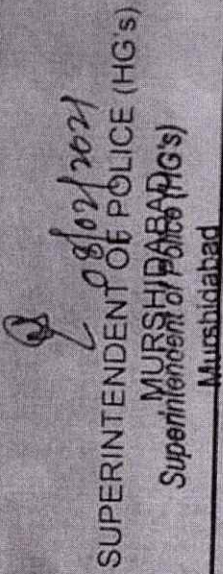 08/02/2021
SUPERINTENDENT OF POLICE (HG's)
MURSHIDABAD
Superintendent of Police (HG's)
Murshidabad